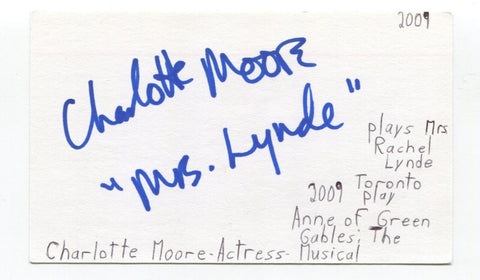 2009
Charlotte Moore
"Mrs. Lynde"
plays Mrs
Rachel
Lynde
2009 Toronto
play
Anne of Green
Gables: The
Charlotte Moore-Actress- Musical